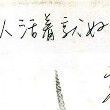 人活着就如